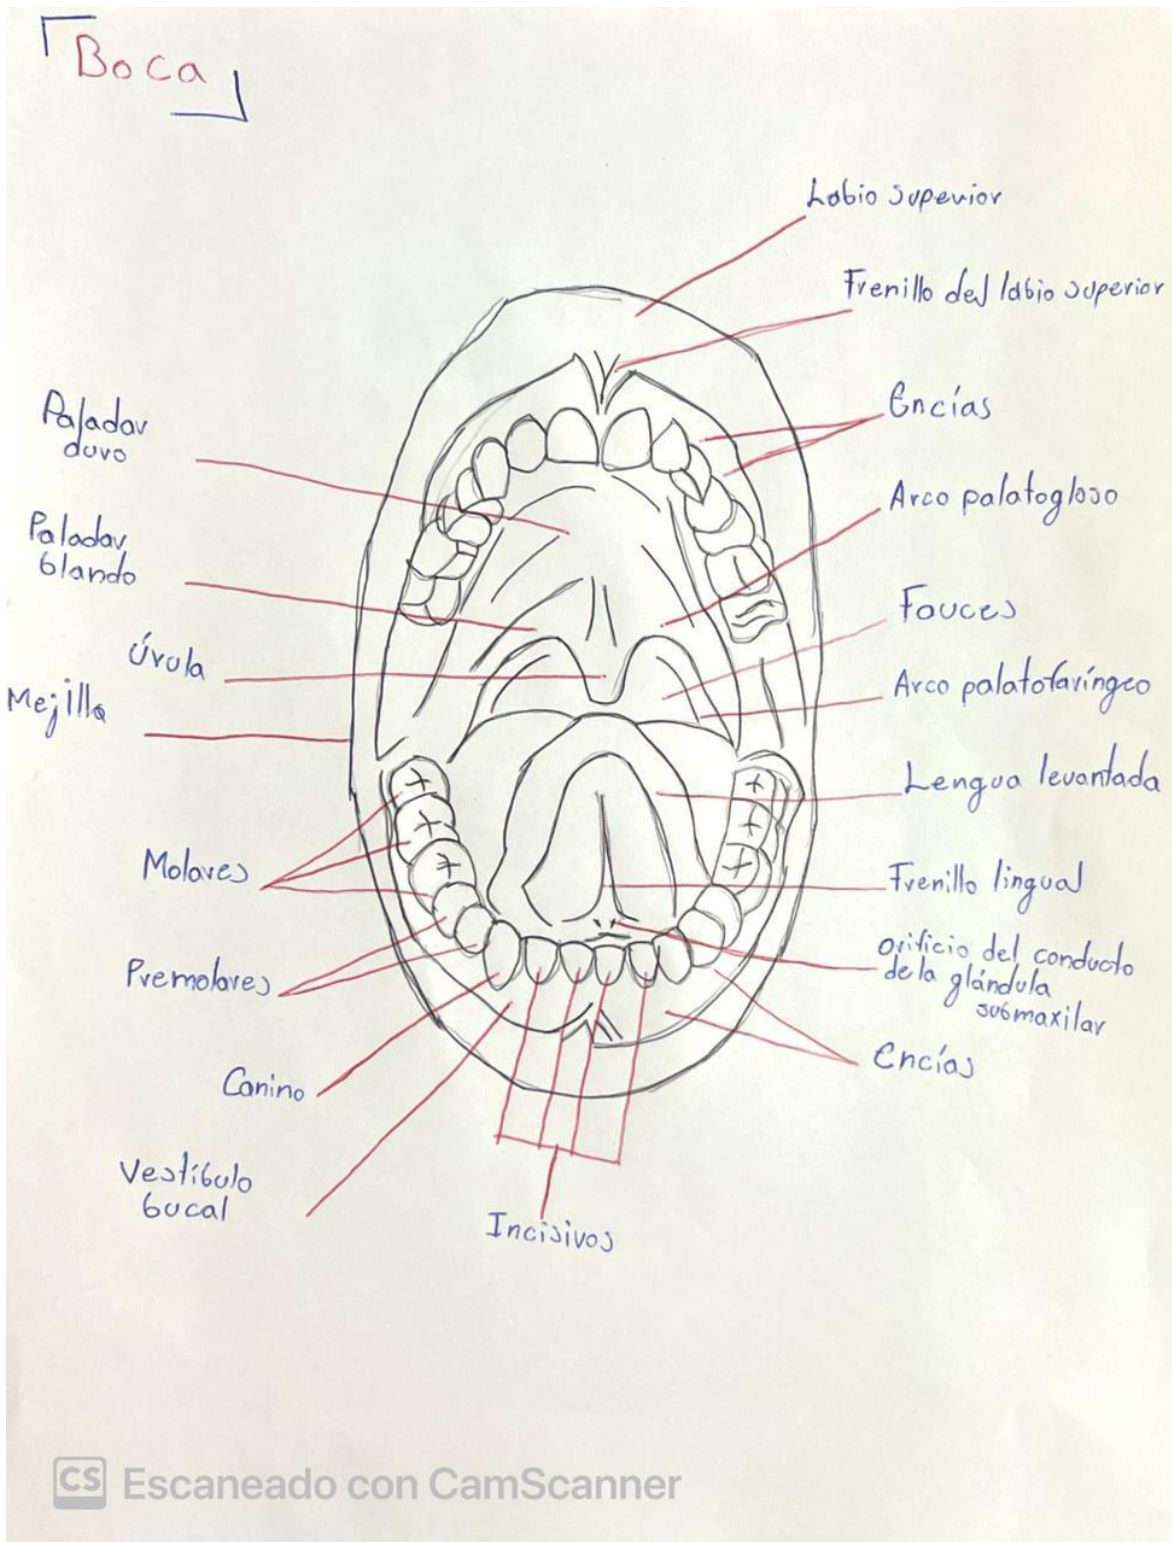 Boca
Labio superior
Frenillo del labio superior
Encías
Arco palatogloso
Fauces
Arco palatofaríngeo
Lengua levantada
Frenillo lingual
orificio del conducto
de la glándula
submaxilar
Encías
Paladar
duro
Paladar
blando
Úvula
Mejilla
Molares
Premolares
Canino
Vestíbulo
bucal
Incisivos
CS Escaneado con CamScanner